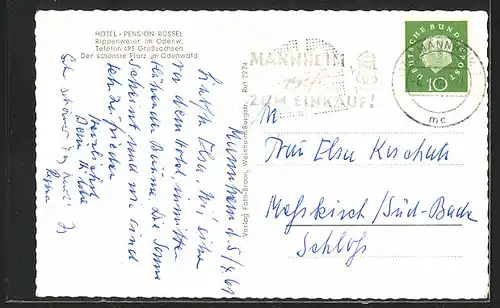 HOTEL - PENSION RÜSSEL
Rippenweier im Odenw.
Telefon 495 Großsachsen
Der schönste Platz im Odenwald
Mannheim d. 5/4.61
Liebste Elsa! Wir sitzen
vor dem Hotel inmitten
blühender Bäume. Die Sonne
scheint und wir sind
sehr zufrieden
Herzlichst
Dein
Verlag Foto-Braun, Weinheim/Bergstr. Best. 2274
MANNHEIM
ZUM EINKAUF!
MANNHEIM
mc
DEUTSCHE BUNDESPOST
10
Frau Elsa
Meßkirch / Süd-Baden
Schloß